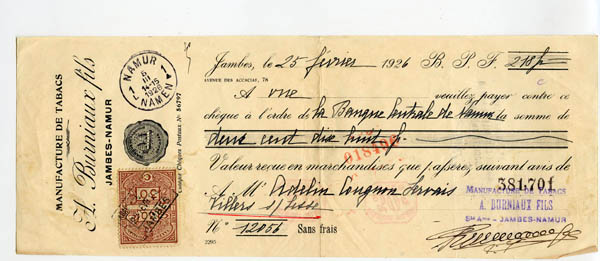 MANUFACTURE DE TABACS
A. Burniaux fils
JAMBES-NAMUR
NAMUR 1
6
III
14-15
1926
1 NAMEN
Compte Chèques Postaux Nº 86797
Jambes, le 25 février 1926 B. P. F. 218 f
AVENUE DES ACACIAS, 78
A vue veuillez payer contre ce
chèque à l'ordre de la Banque Centrale de Namur la somme de
deux cent dix huit f
018406
Valeur reçue en marchandises que passerez suivant avis de
A Mr Adelin Servais
Villers s/ Lesse
381,701
MANUFACTURE DE TABACS
A. BURNIAUX FILS
JAMBES-NAMUR
Nº 12056 Sans frais
2295